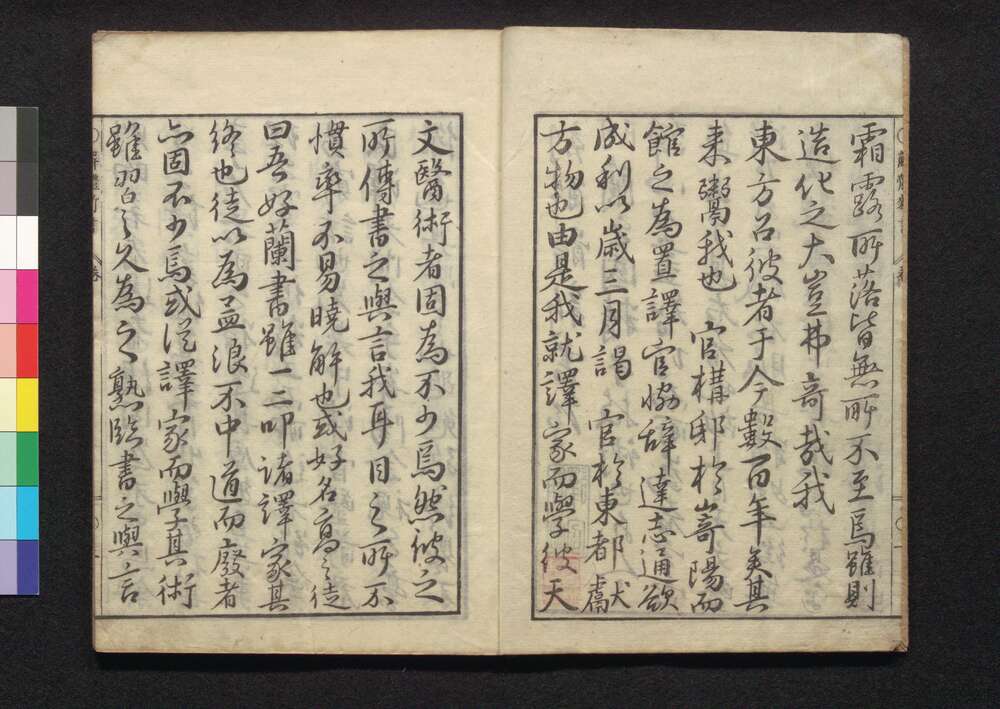 霜露所落皆無所不至焉雖則
造化之大豈弗奇哉我
東方呂彼者于今數百年矣其
来鬻我也　官構邸於嵜陽而
館之為置譯官協辞達志通欲
成利以歳三月謁　官於東都獻
方物也由是我就譯家而學彼天
文醫術者固為不少焉然彼之
所傳書之與言我耳目之所不
慣率不易曉解也或好名高之徒
曰吾好蘭書雖一二叩諸譯家其
終也徒以為孟浪不中道而廢者
亦固不少焉或従譯家而學其術
雖習之久為之熟臨書之與言